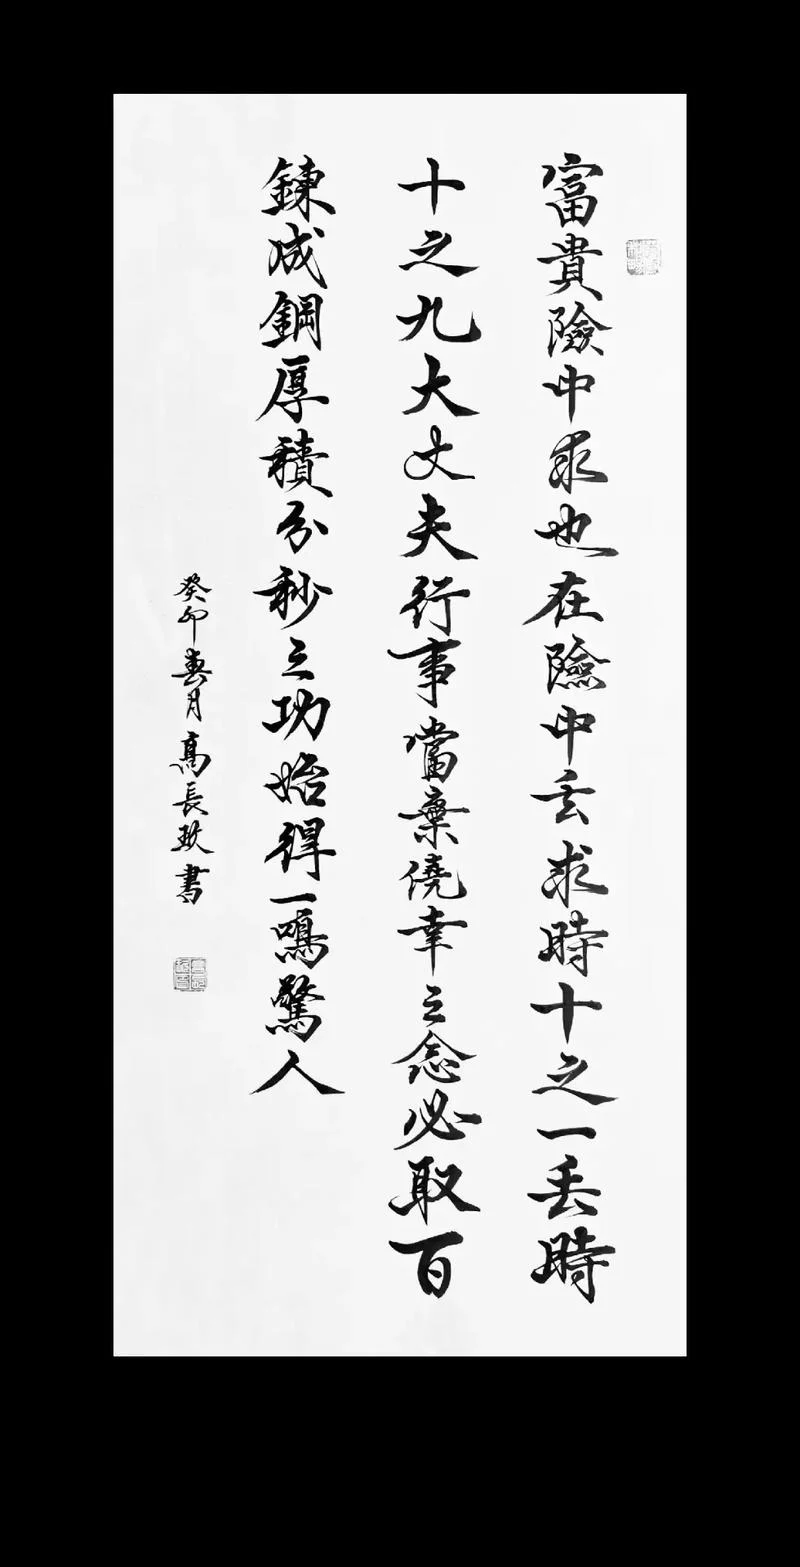 富貴險中求也在險中丟求時十之一丢時
十之九大丈夫行事當棄僥幸之念必取百
鍊成鋼厚積分秒之功始得一鳴驚人
癸卯春月高長玖書